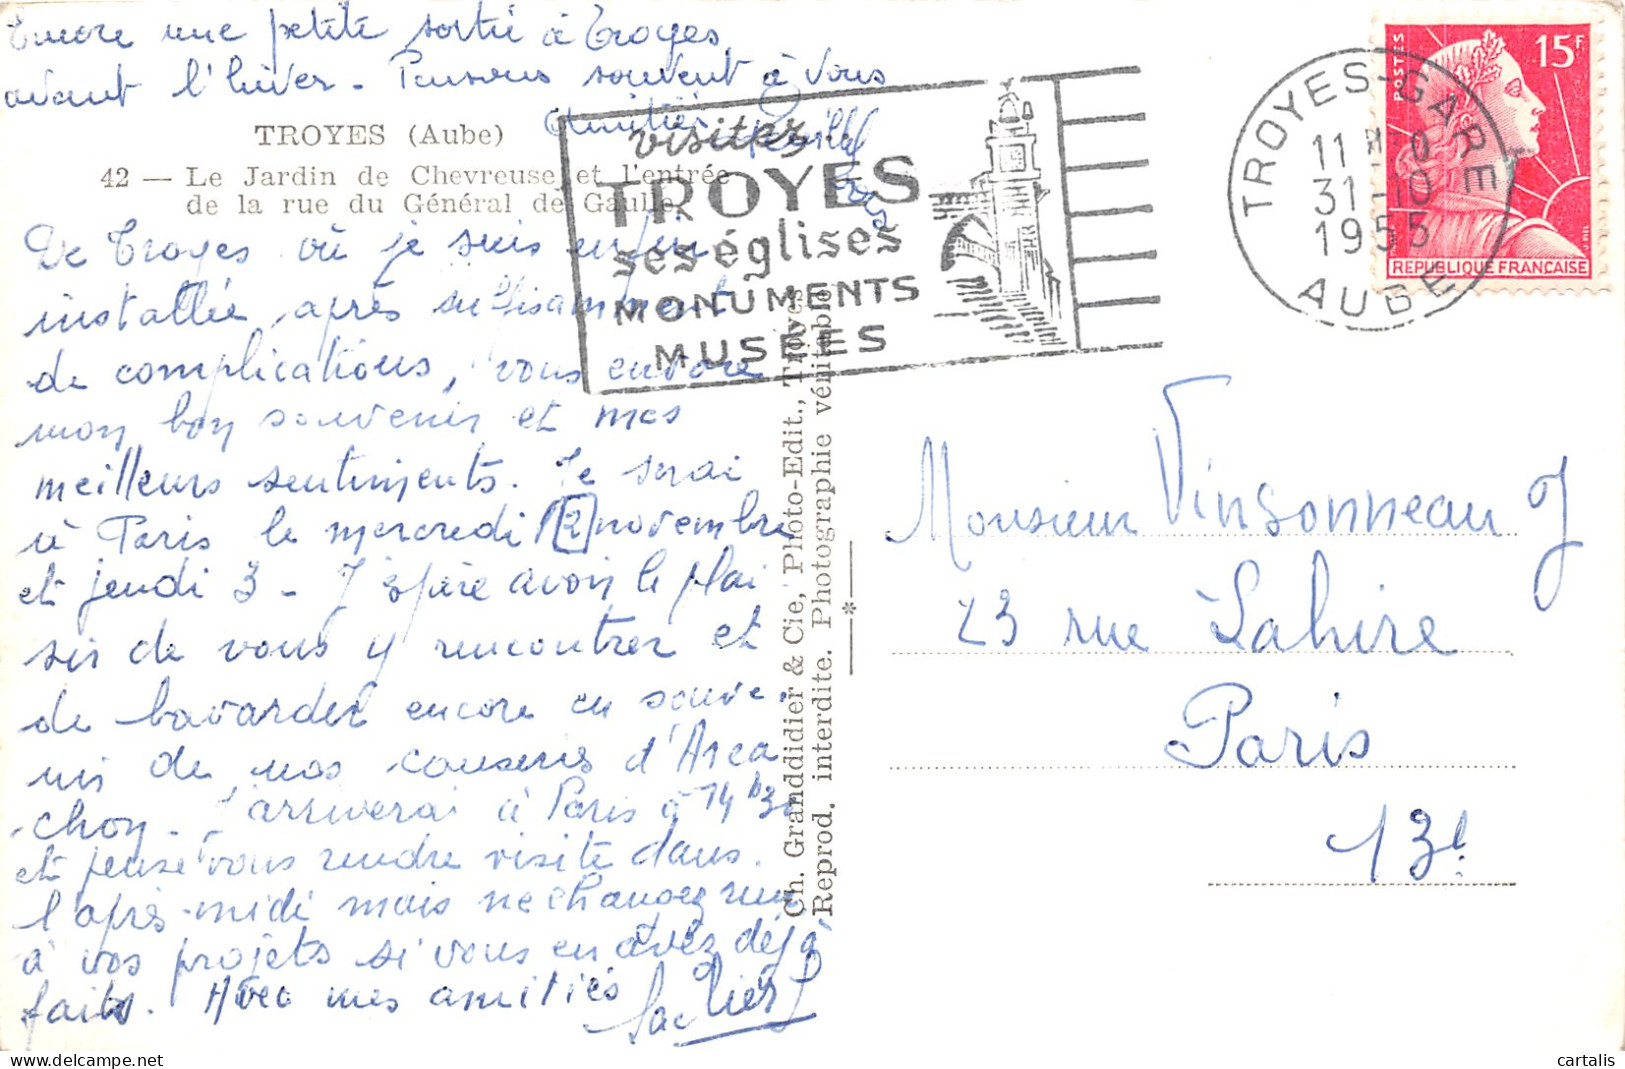 Encore une petite sortie à Troyes
avant l'hiver - Pensons souvent à vous
Amitiés
TROYES (Aube)
42 — Le Jardin de Chevreuse et l'entrée
de la rue du Général de Gaulle.
De Troyes où je suis enfin
installée, après suffisamment
de complications, vous envoie
mon bon souvenir et mes
meilleurs sentiments. Je serai
à Paris le mercredi 2 novembre
et jeudi 3 - J'espère avoir le plai
sir de vous y rencontrer et
de bavarder encore en souve-
nir de nos causeries d'Arca
chon - J'arriverai à Paris à 14h30
et pense vous rendre visite dans
l'après-midi mais ne changez rien
à vos projets si vous en avez déjà
faits. Avec mes amitiés
visitez
TROYES
ses églises
MONUMENTS
MUSÉES
TROYES-GARE
11H
31-10
1955
AUBE
POSTES
15F
REPUBLIQUE FRANCAISE
Ch. Granddidier & Cie, Photo-Edit., Troyes
Reprod. interdite. Photographie véritable
Monsieur Vinsonneau
23 rue Lahire
Paris
13e
cartalis